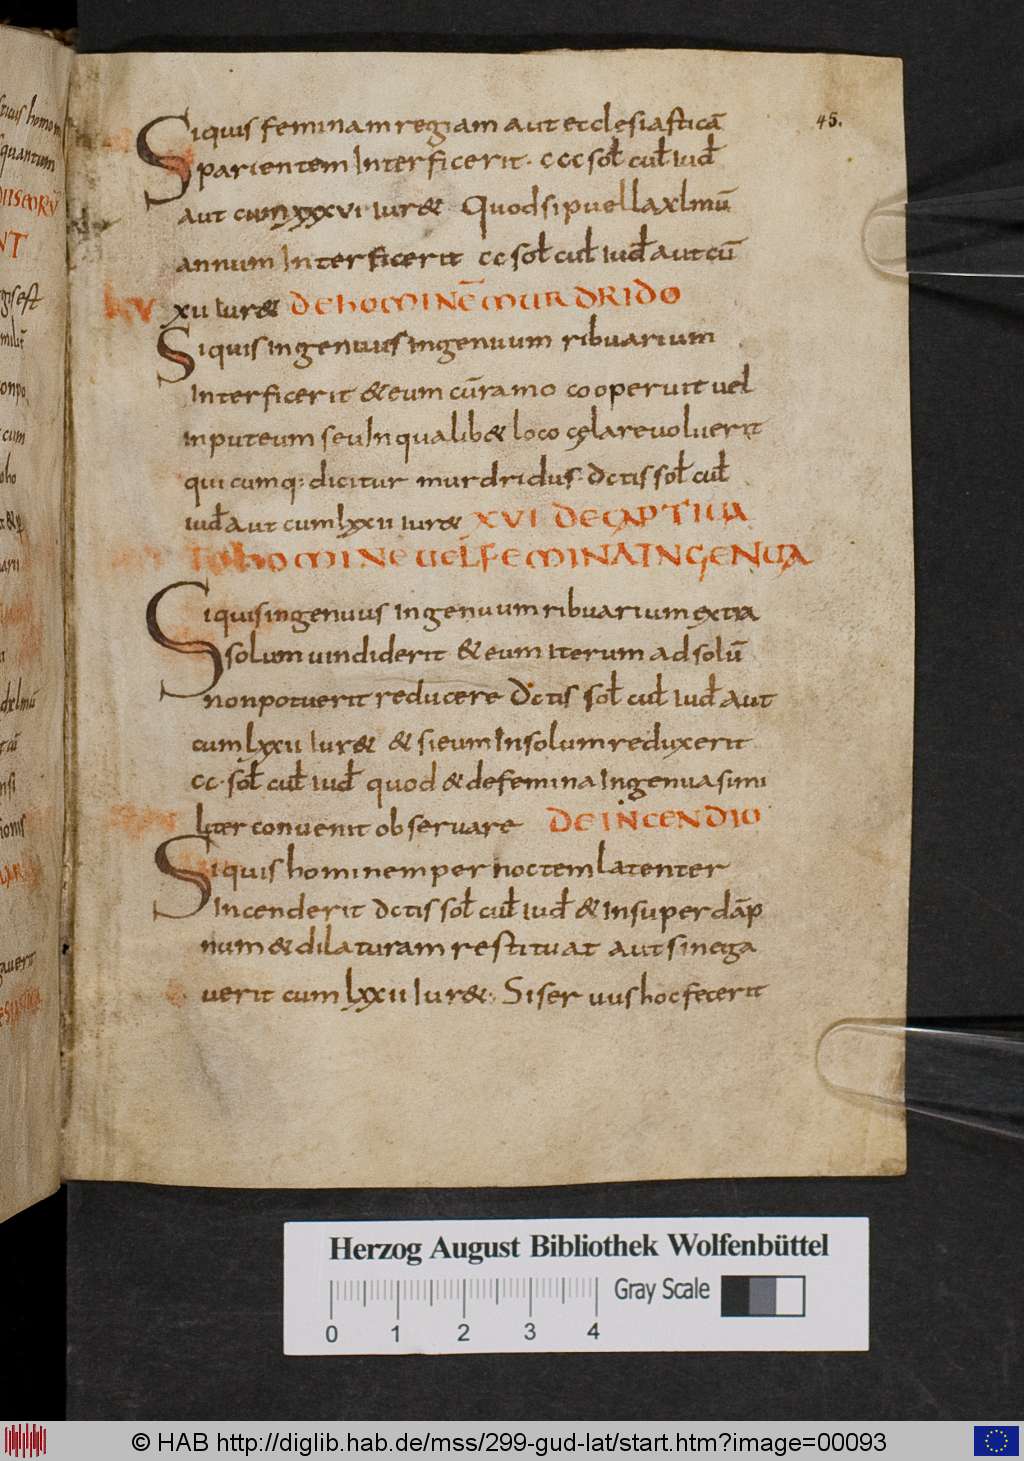 45.
Siquis feminam regiam aut etclesiasticā
parientem Interficerit · ccc sol cul iud
aut cumxxxvi iur&. Quodsipuellaxlmū
annum Interficerit cc sol cul iud aut cū
XV xii iur& DEHOMINĒMURDRIDO
Siquis ingenuus ingenuum ribuarium
Interficerit &eum cūramo cooperuit uel
inputeum seuInqualib& loco cęlareuoluerit
qui cumq: dicitur murdridus · dctis sol cul
iud aut cum lxxii iur& XVI DECAPTIUA
HOMINEUELFEMINAINGENUA
Siquisingenuus ingenuumribuarium extra
solum uindiderit &eum iterum ad solū
nonpotuerit reducere Dctis sol cul iud aut
cum lxxii iur& & sieum Insolumreduxerit
cc · sol cul iud quod &defemina Ingenuasimi
liter conuenit obseruare DEINCENDIO
Siquis hominem per noctem latenter
Incenderit dctis sol cul iud & Insuper dāp
num &dilaturam restituat aut sinega
uerit cum lxxii Iur&. Siser uushocfecerit
Herzog August Bibliothek Wolfenbüttel
Gray Scale
0 1 2 3 4
© HAB http://diglib.hab.de/mss/299-gud-lat/start.htm?image=00093